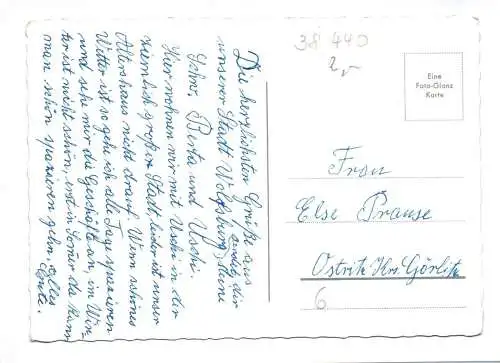 Die herzlichsten Grüße aus
unserer Stadt Wolfsburg sendet dir deine
Schw. Berta und Uschi.
Hier wohnen wir mit Uschi in der
ziemlich großen Stadt, leider ist unser
Altershaus nicht drauf. Wenn schönes
Wetter ist so gehe ich alle Tage spazieren
und sehe mir die Geschäfte an, im Win-
ter ist nicht schön, und im Somer da kann
man schön spazieren gehn, alles
Gute.
38 440
2,-
Eine
Foto-Glanz
Karte
Frau
Else Prause
Ostritz Krs. Görlitz
6